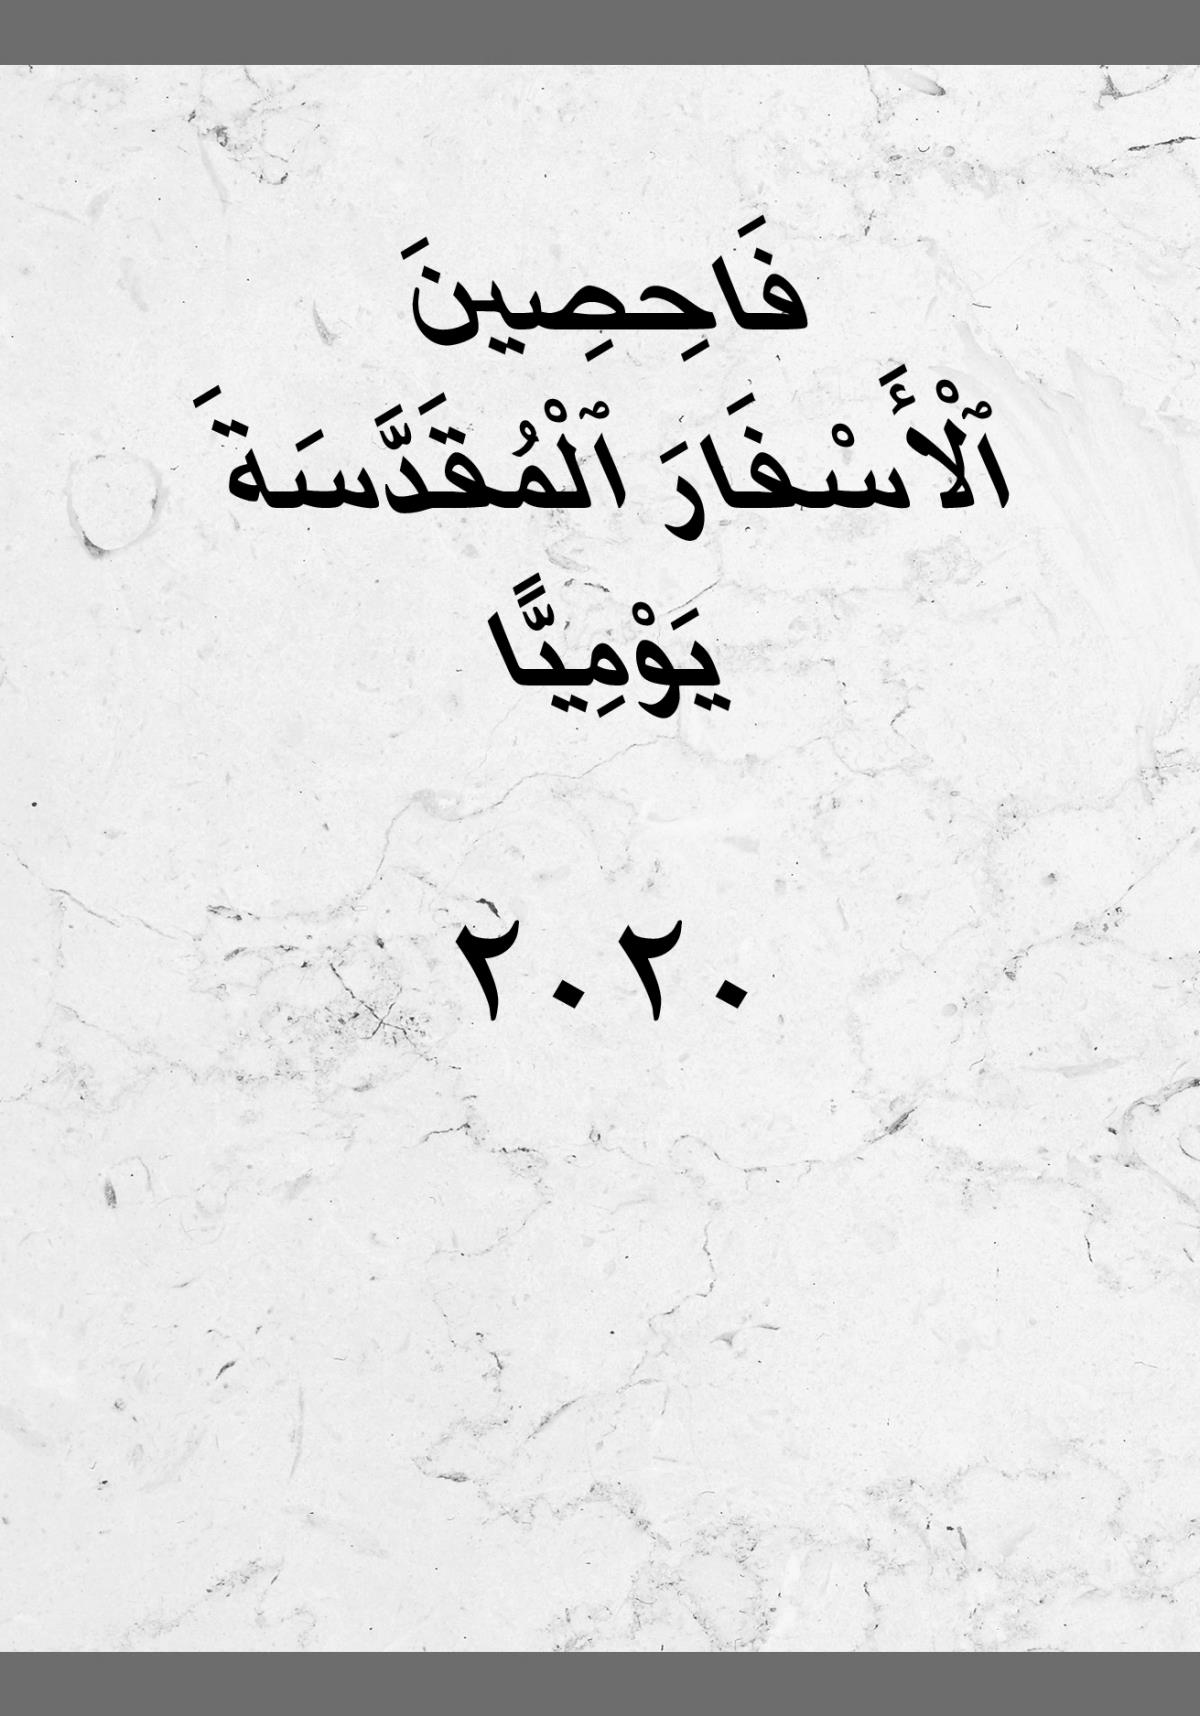 فَاحِصِينَ
ٱلْأَسْفَارَ ٱلْمُقَدَّسَةَ
يَوْمِيًّا
٢٠٢٠